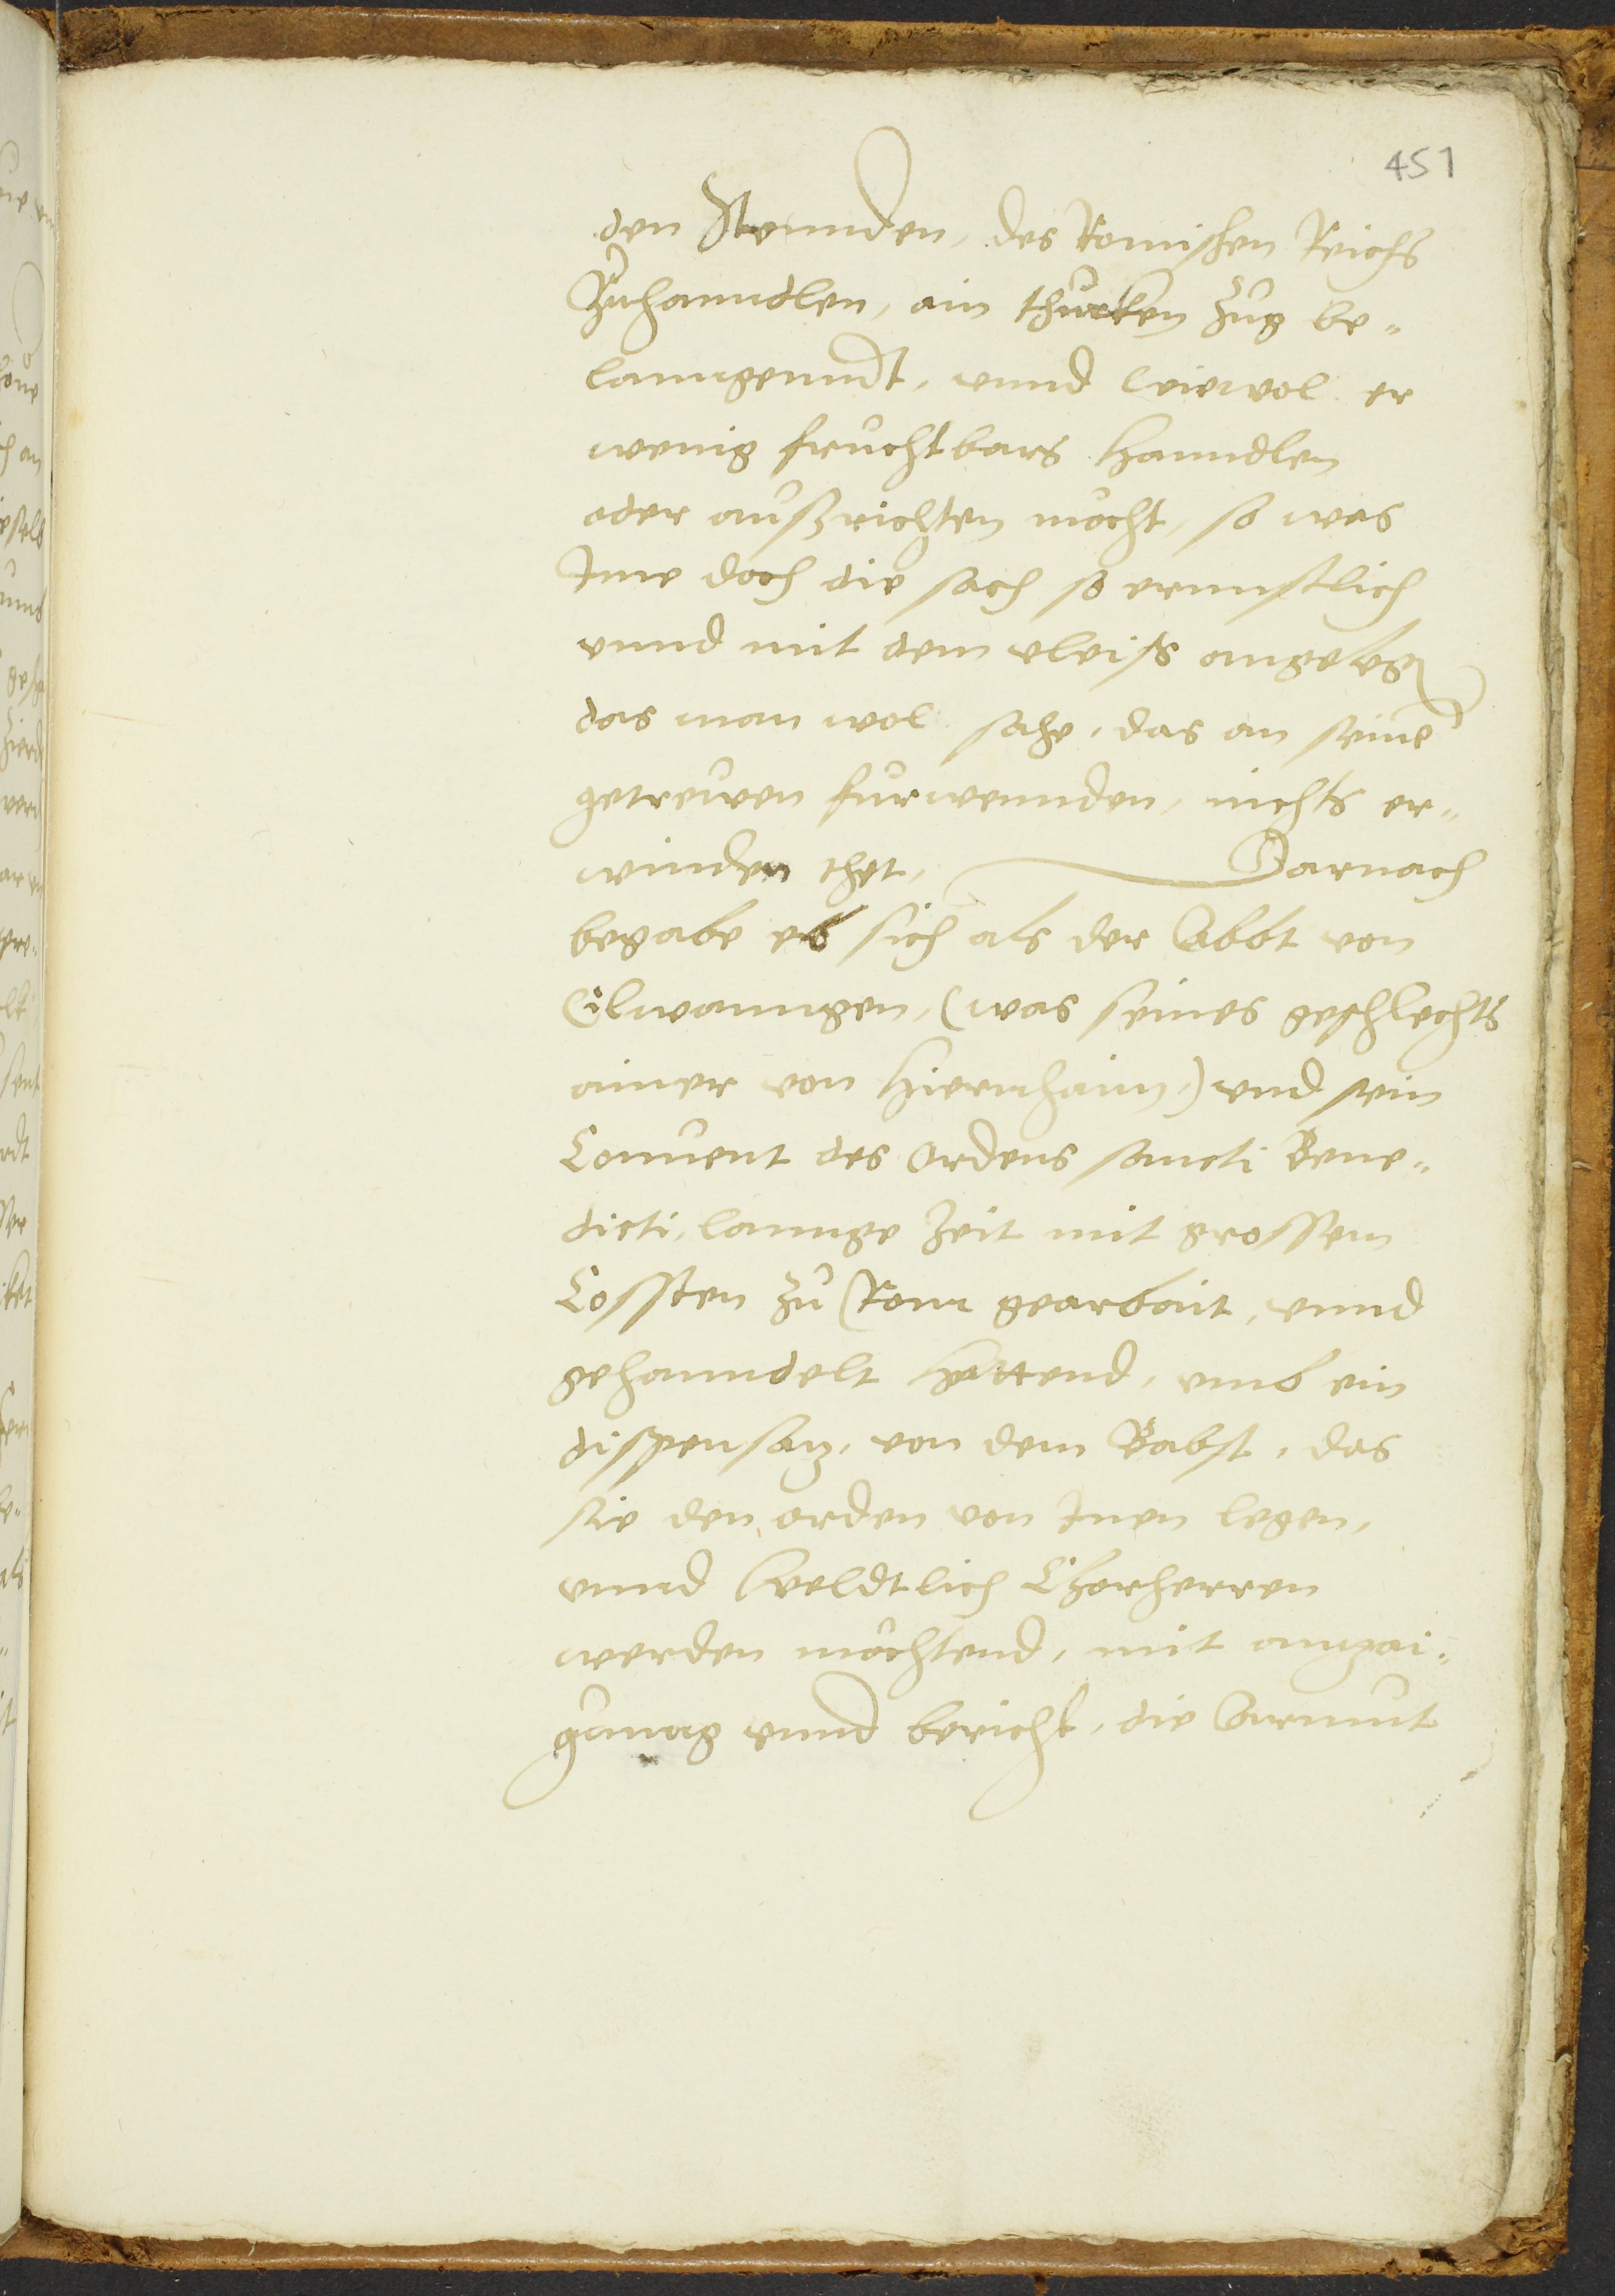 451
den Stennden, des Romischen Reichs
Zuhanndlen, ain thurken Zug be-
lanngenndt, vnnd wiewol er
wenig fruchtbars hanndlen
oder außrichten mocht, so was
Ime doch die sach so ernnstlich
vnnd mit dem vleiß angelegen
das man wol sahe, das an seinem
getrewen furwennden, nichts er-
winden thet, Darnach
begabe es sich als der Abbt von
Elwanngen, (was seines geschlechts
ainer von Hiernhaim,) vnd sein
Conuent des Ordens sancti Bene-
dicti, lannge Zeit mit grossem
Cossten zu Rom gearbait, vnnd
gehanndelt hattend, vmb ein
dispensatz, von dem Babst, das
sie den orden von Inen legen,
vnnd Weldtlich Chorherren
werden möchtend, mit anzai-
gunng vnnd bericht, die Armut